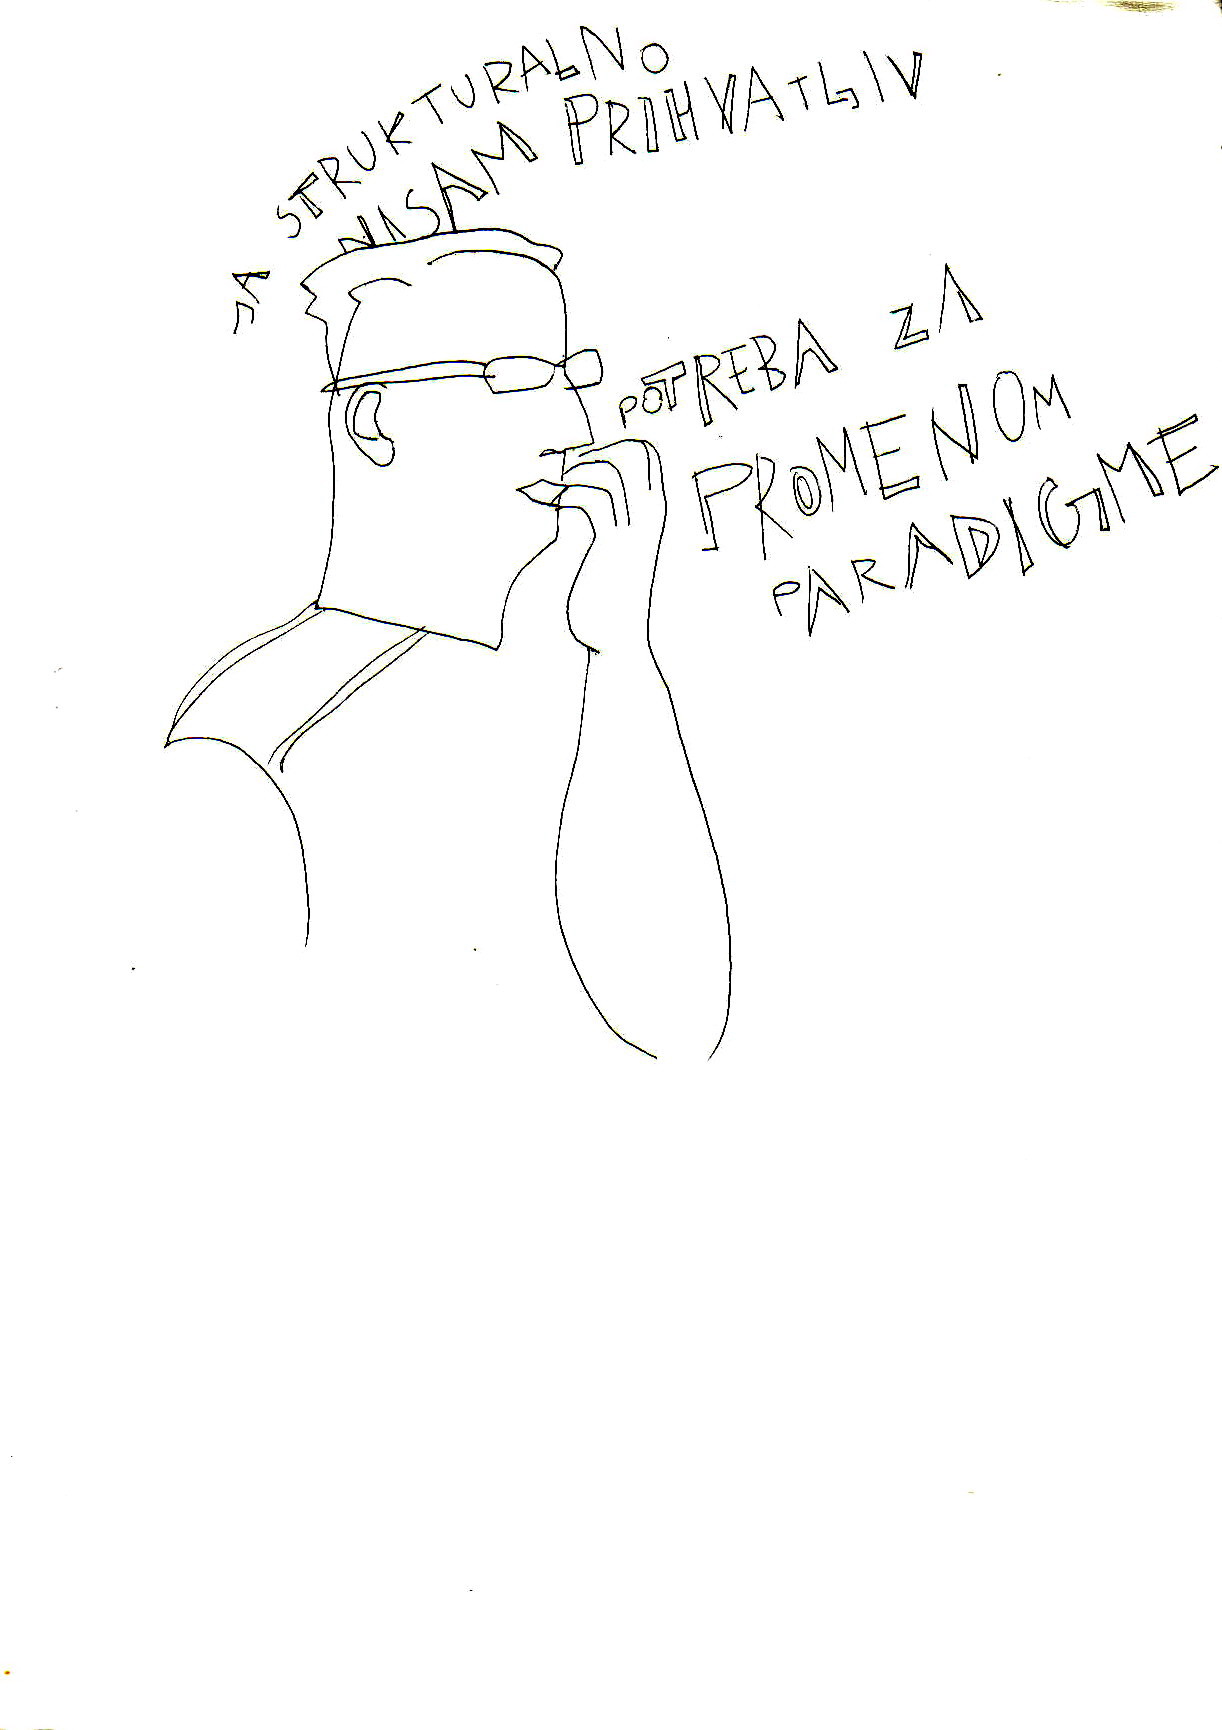 JA STRUKTURALNO
NISAM PRIHVATLJIV
POTREBA ZA
PROMENOM
PARADIGME